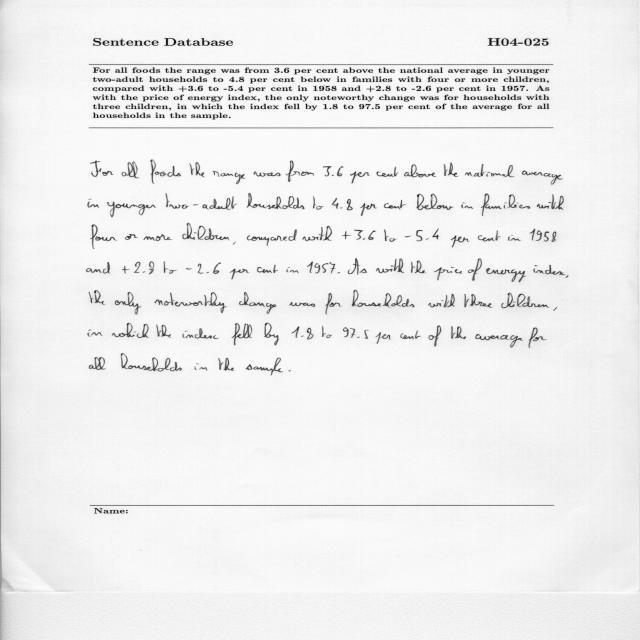 Sentence Database H04-025
For all foods the range was from 3.6 per cent above the national average in younger
two-adult households to 4.8 per cent below in families with four or more children,
compared with +3.6 to -5.4 per cent in 1958 and +2.8 to -2.6 per cent in 1957. As
with the price of energy index, the only noteworthy change was for households with
three children, in which the index fell by 1.8 to 97.5 per cent of the average for all
households in the sample.
For all foods the range was from 3.6 per cent above the national average
in younger two-adult households to 4.8 per cent below in families with
four or more children, compared with +3.6 to -5.4 per cent in 1958
and +2.8 to -2.6 per cent in 1957. As with the price of energy index,
the only noteworthy change was for households with three children,
in which the index fell by 1.8 to 97.5 per cent of the average for
all households in the sample.
Name: